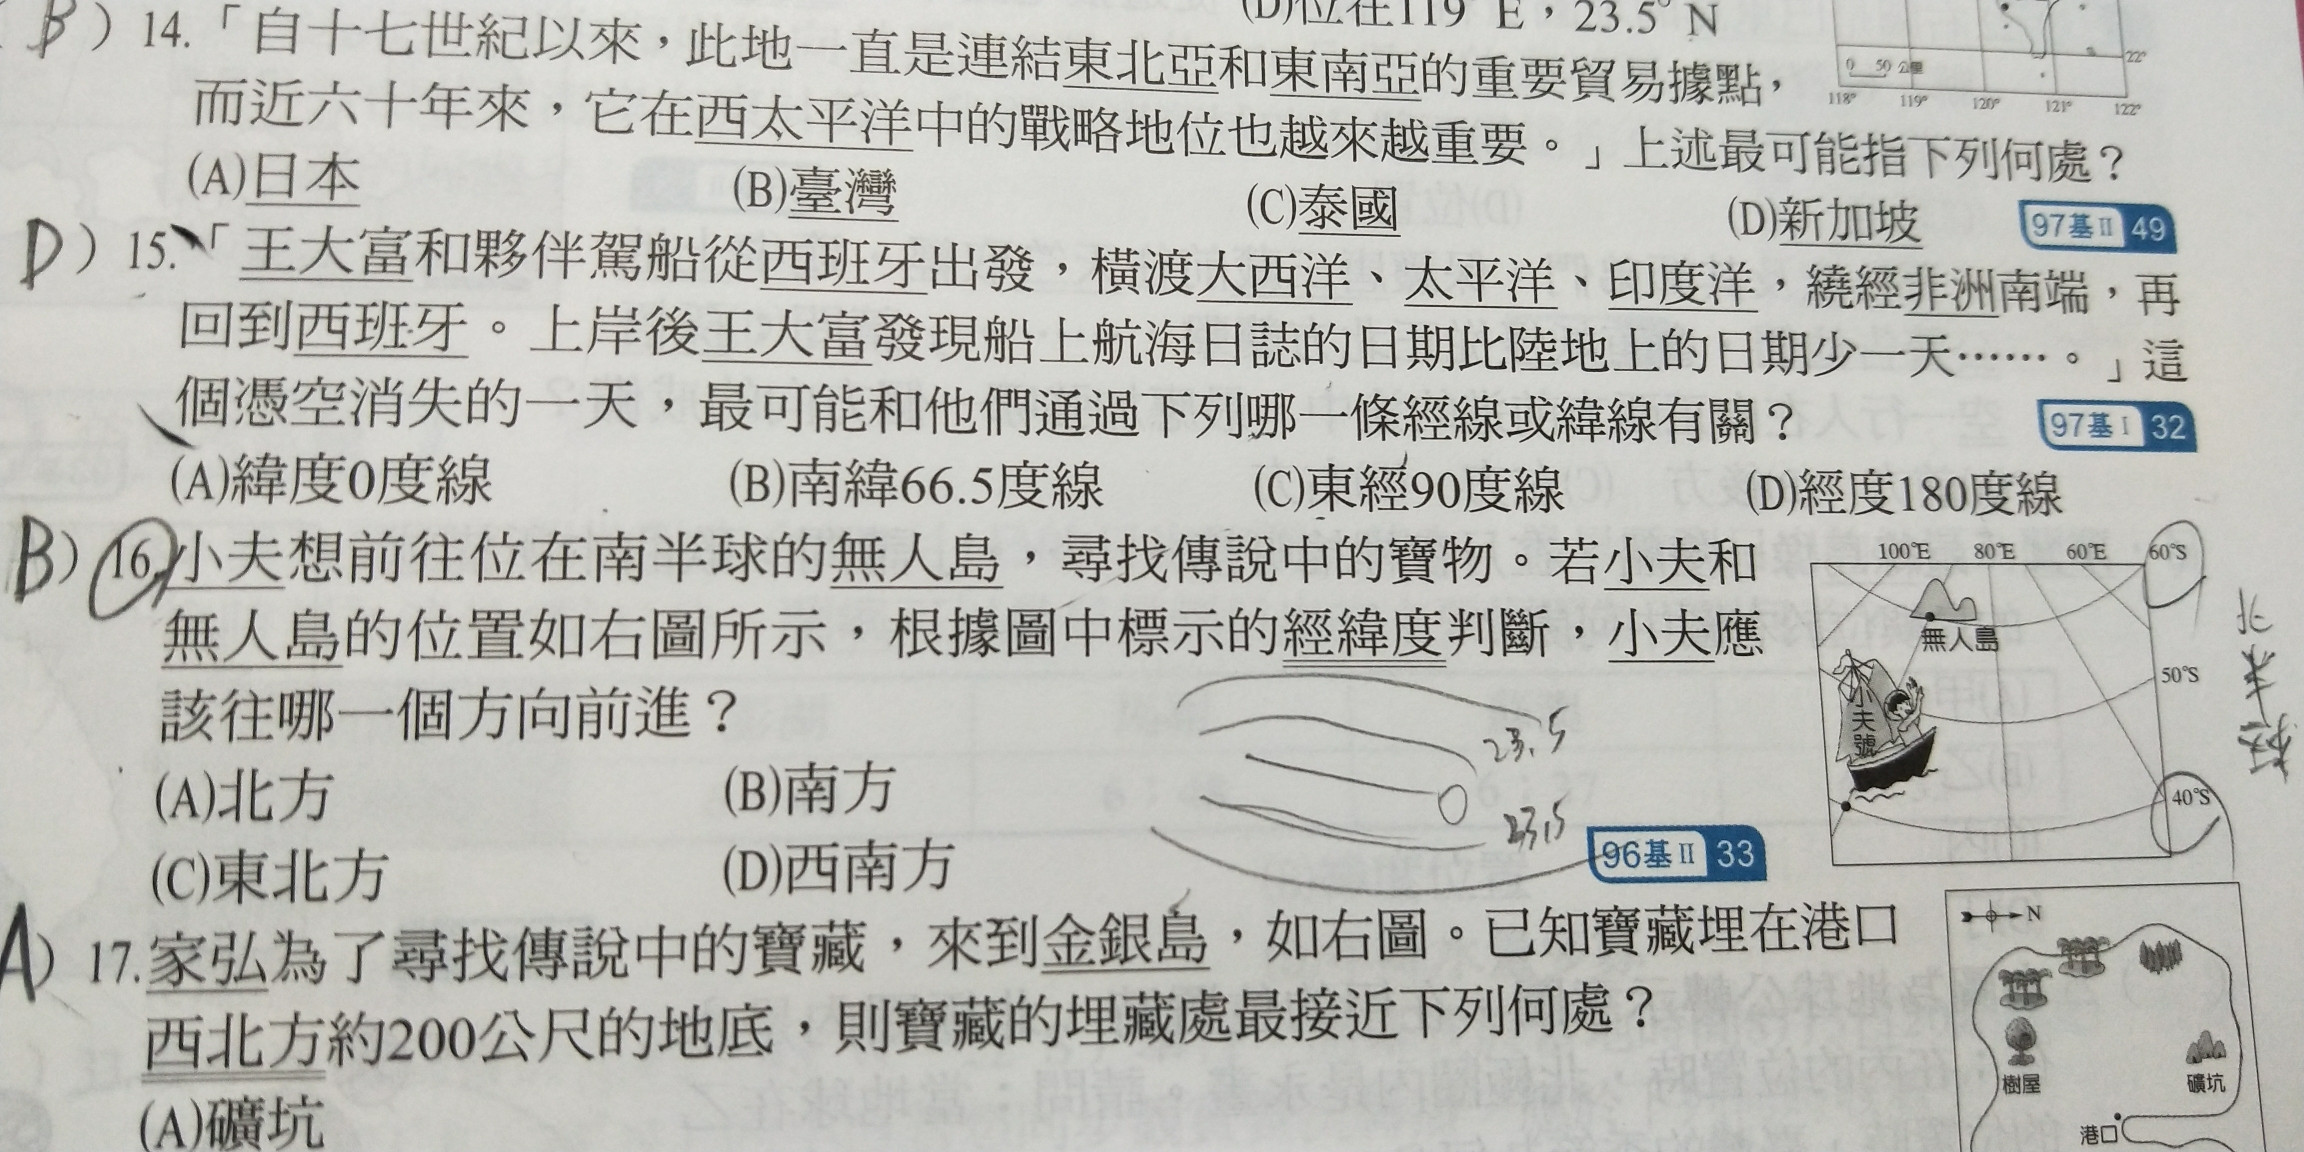 (D)位在119°E，23.5°N
B）14.「自十七世紀以來，此地一直是連結東北亞和東南亞的重要貿易據點，
而近六十年來，它在西太平洋中的戰略地位也越來越重要。」上述最可能指下列何處？
(A)日本 (B)臺灣 (C)泰國 (D)新加坡 97基II 49
0 50 公里
118° 119° 120° 121° 122°
22°
D）15.「王大富和夥伴駕船從西班牙出發，橫渡大西洋、太平洋、印度洋，繞經非洲南端，再
回到西班牙。上岸後王大富發現船上航海日誌的日期比陸地上的日期少一天……。」這
個憑空消失的一天，最可能和他們通過下列哪一條經線或緯線有關？ 97基I 32
(A)緯度0度線 (B)南緯66.5度線 (C)東經90度線 (D)經度180度線
B）16.小夫想前往位在南半球的無人島，尋找傳說中的寶物。若小夫和
無人島的位置如右圖所示，根據圖中標示的經緯度判斷，小夫應
該往哪一個方向前進？
(A)北方 (B)南方
(C)東北方 (D)西南方 96基II 33
23.5
23.5
100°E 80°E 60°E 60°S
無人島
50°S
小夫號
40°S
A）17.家弘為了尋找傳說中的寶藏，來到金銀島，如右圖。已知寶藏埋在港口
西北方約200公尺的地底，則寶藏的埋藏處最接近下列何處？
(A)礦坑
N
樹屋
礦坑
港口